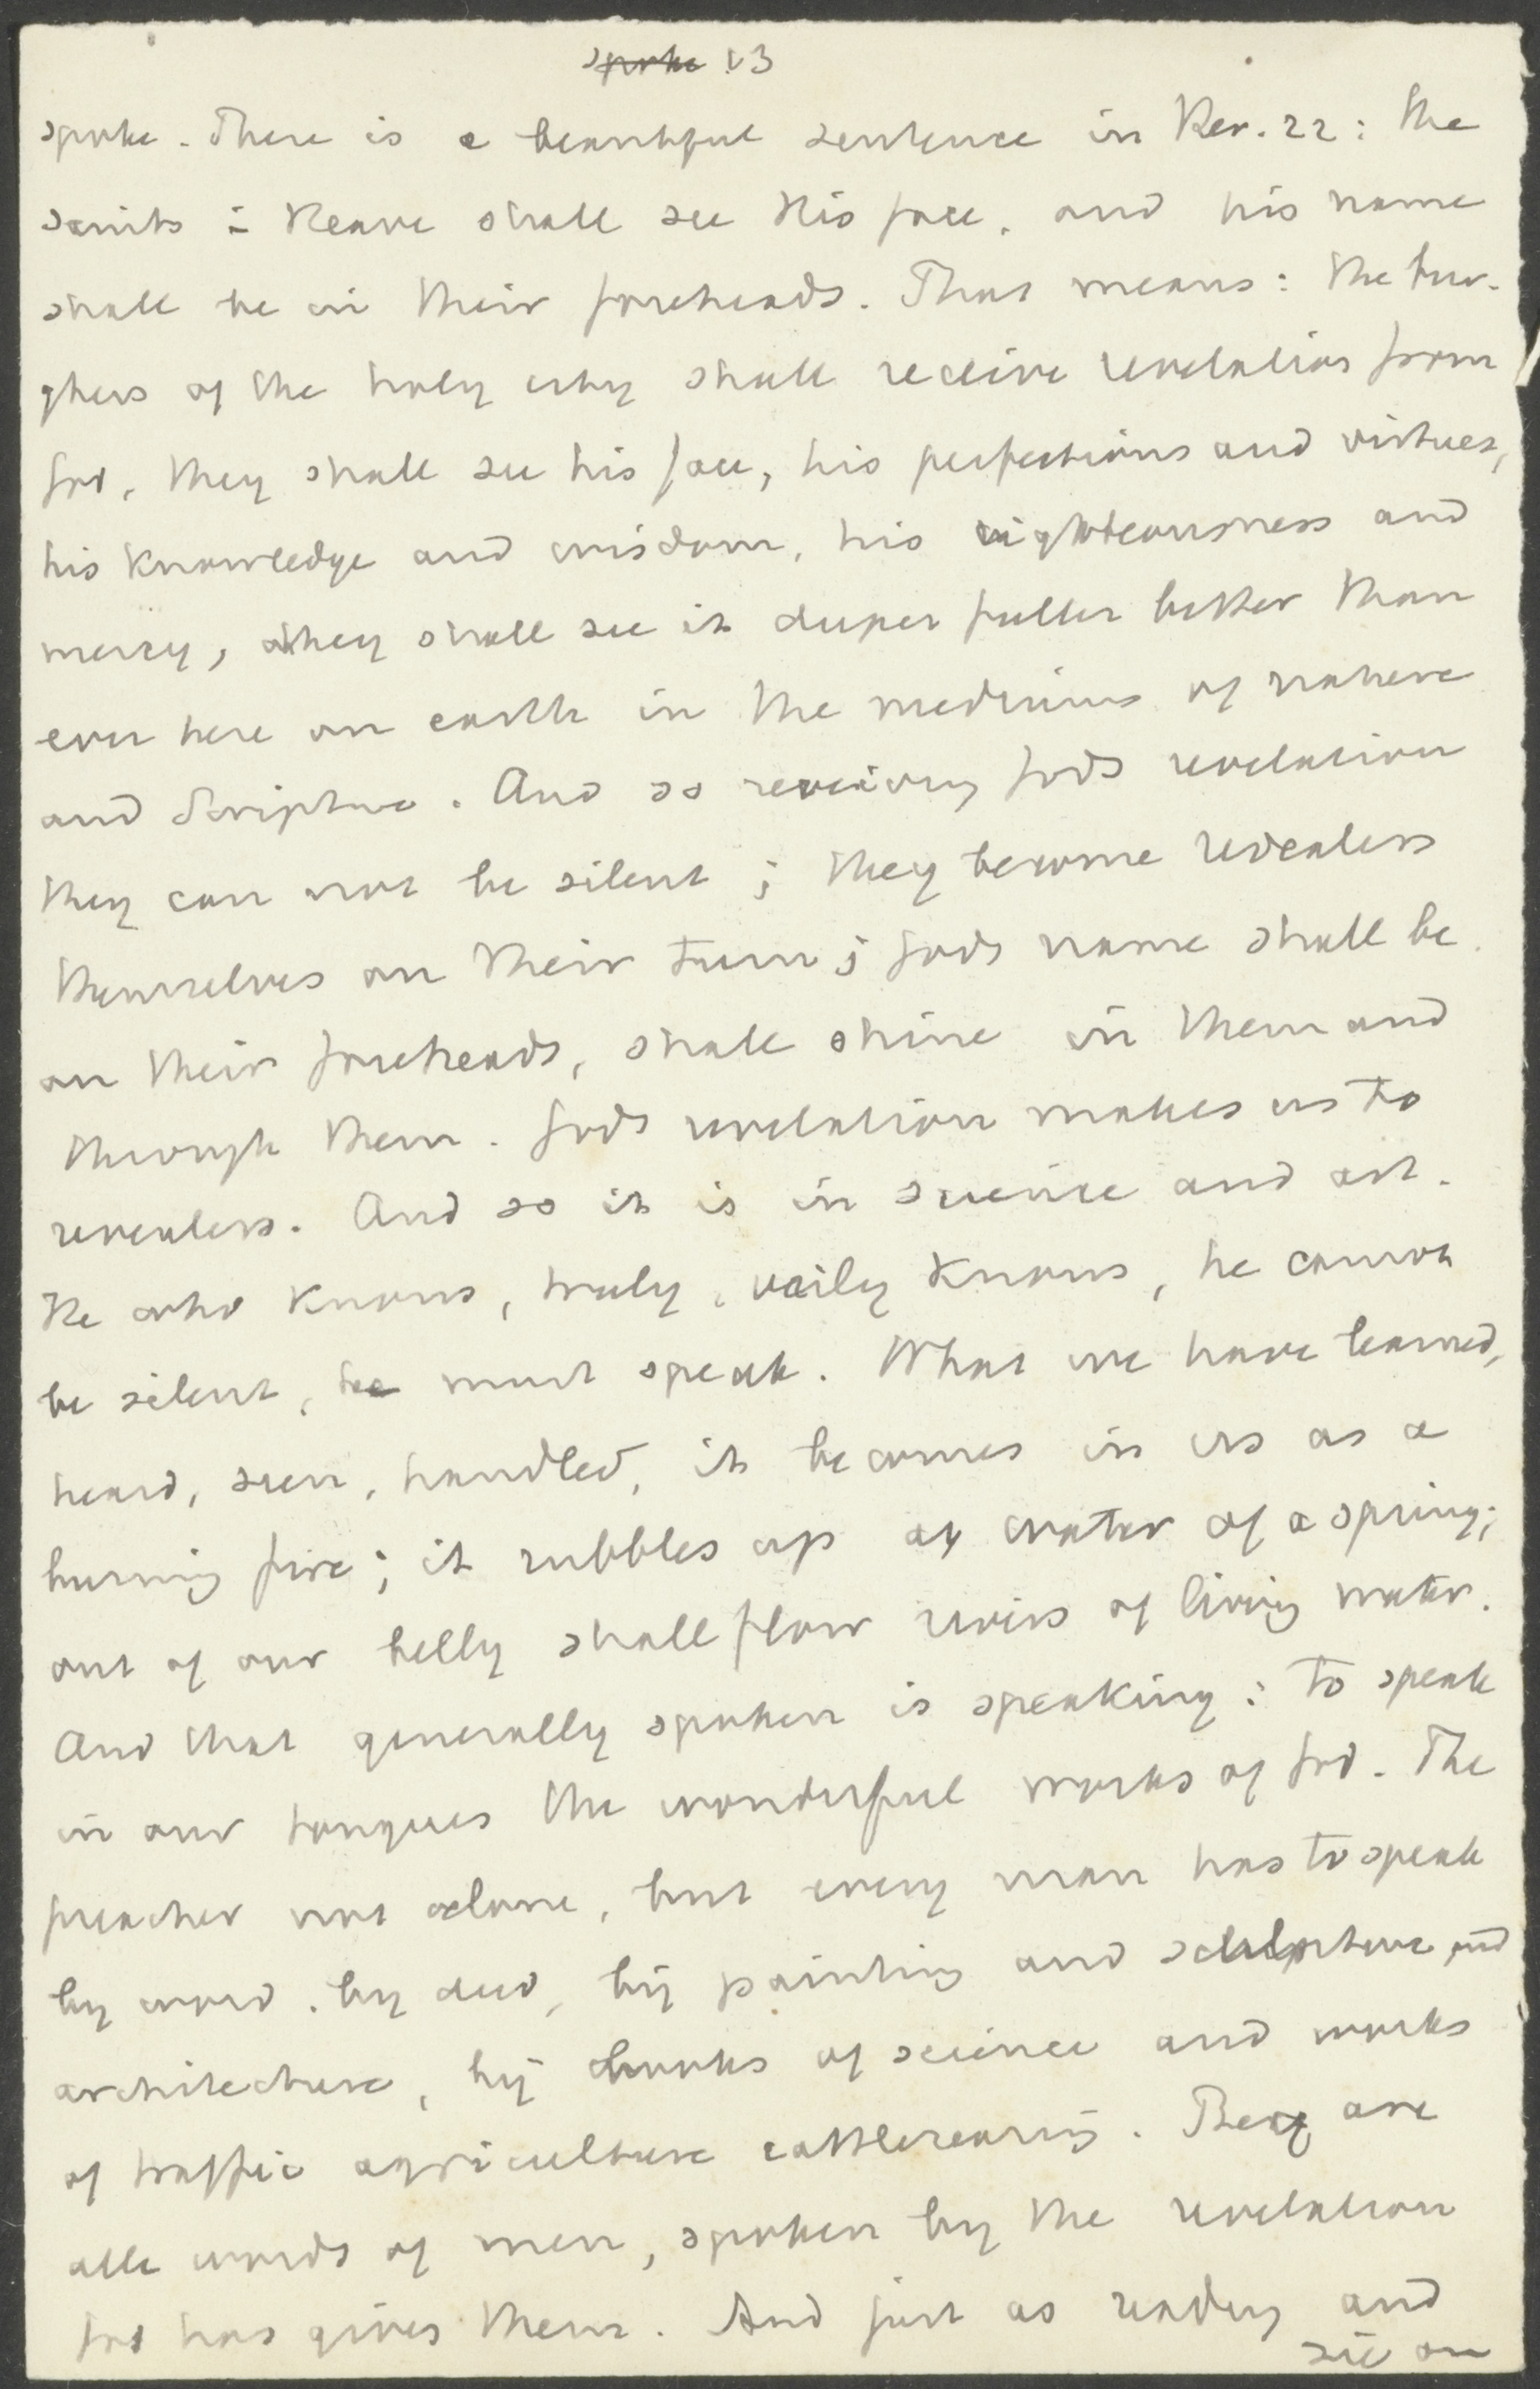 spoke 13
spoke. There is a beautiful sentence in Rev. 22: the
saints i. Heave shall see His face, and his name
shall be in their foreheads. That means: the bur-
ghers of the holy city shall receive revelation from
God, they shall see his face, his perfections and virtues,
his knowledge and wisdom, his righteousness and
mercy, they shall see it deeper fuller better than
ever here on earth in the mediums of nature
and Scripture. And so receiving Gods revelation
they can not be silent; they become revealers
themselves on their turn; Gods name shall be
on their foreheads, shall shine in them and
through them. Gods revelation makes us to
revealers. And so it is in science and art.
He who knows, truly, verily knows, he cannot
be silent, he must speak. What we have learned,
heard, seen, handled, it becomes in us as a
burning fire; it rubbles up as water of a spring;
out of our belly shall flow rivers of living water.
And that generally spoken is speaking: to speak
in our tongues the wonderful works of God. The
preacher not alone, but every man has to speak
by word, by deed, by painting and sculpture and
architecture, by works of science and works
of traffic agriculture cattlerearing. They are
alle words of men, spoken by the revelation
God has given them. And just as reading and
see on